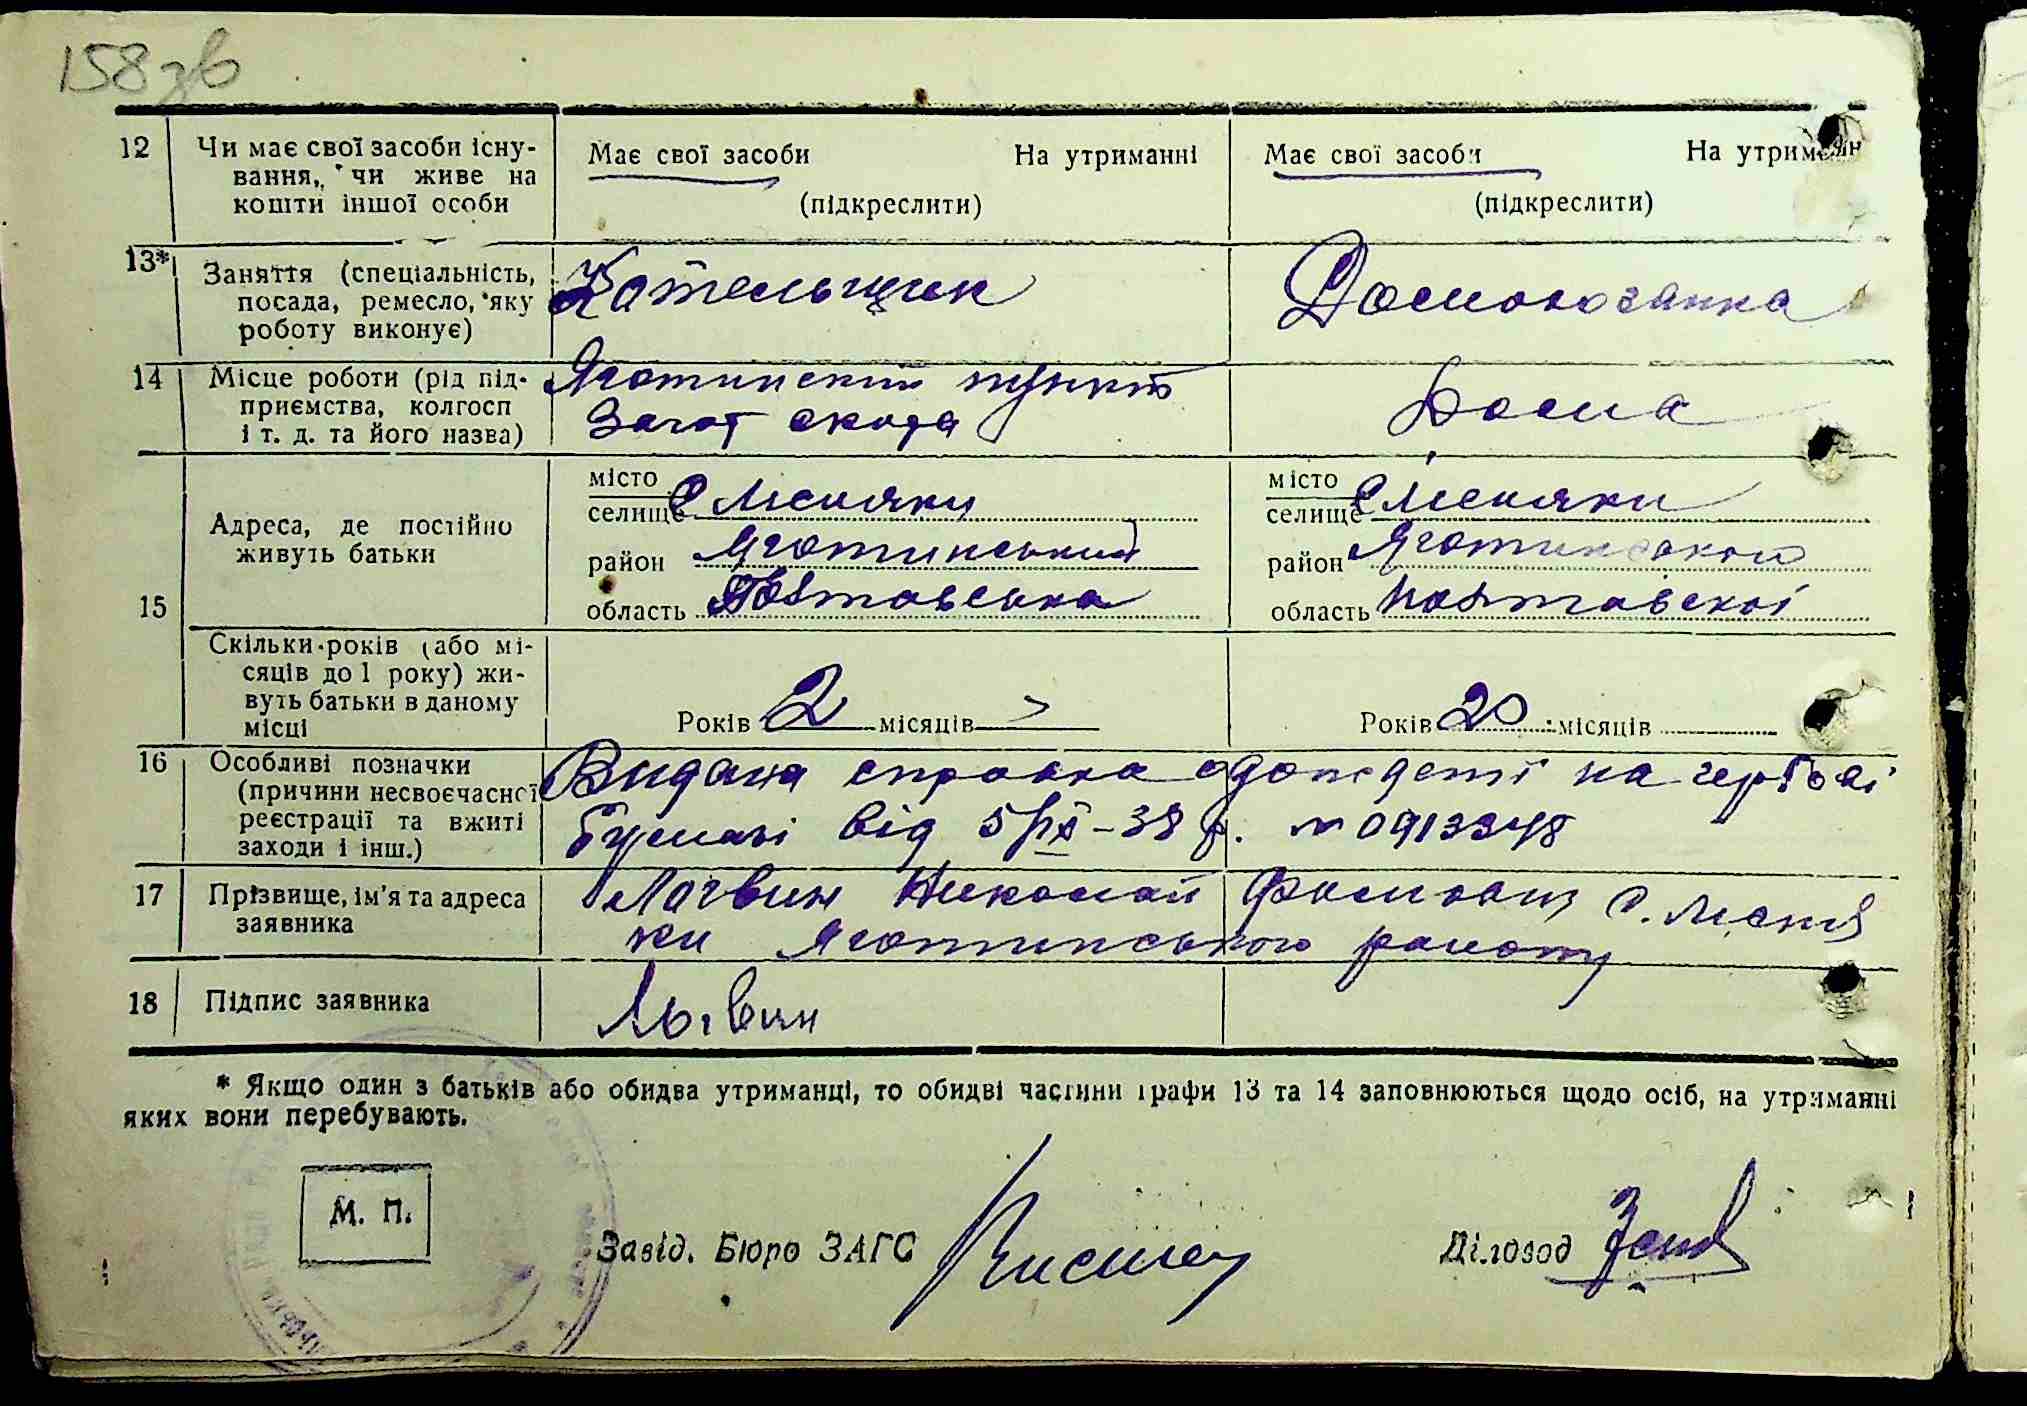 158 зв
12 Чи має свої засоби існу- Має свої засоби На утриманні Має свої засоби На утриман
вання, чи живе на
кошти іншої особи (підкреслити) (підкреслити)
13* Заняття (спеціальність, Кательщик Домохозайка
посада, ремесло, яку
роботу виконує)
14 Місце роботи (рід під- Яготинский пункт Дома
приємства, колгосп Загот скота
і т. д. та його назва)
15 Адреса, де постійно
живуть батьки
місто місто
селище с Лісняки селище с Лісняки
район Яготинський район Яготинського
область Полтавська область Полтавскої
Скільки років (або мі-
сяців до 1 року) жи-
вуть батьки в даному
місці
Років 2 місяців Років 20 місяців
16 Особливі позначки Видана справка на гербові
(причини несвоєчасної бумазі від 5/IX-38 р. № 0913348
реєстрації та вжиті
заходи і інш.)
17 Прізвище, ім'я та адреса Логвин Николай с. Лісня
заявника ки Яготинського району
18 Підпис заявника Логвин
* Якщо один з батьків або обидва утриманці, то обидві частини графи 13 та 14 заповнюються щодо осіб, на утриманні
яких вони перебувають.
М. П.
Завід. Бюро ЗАГС
Діловод